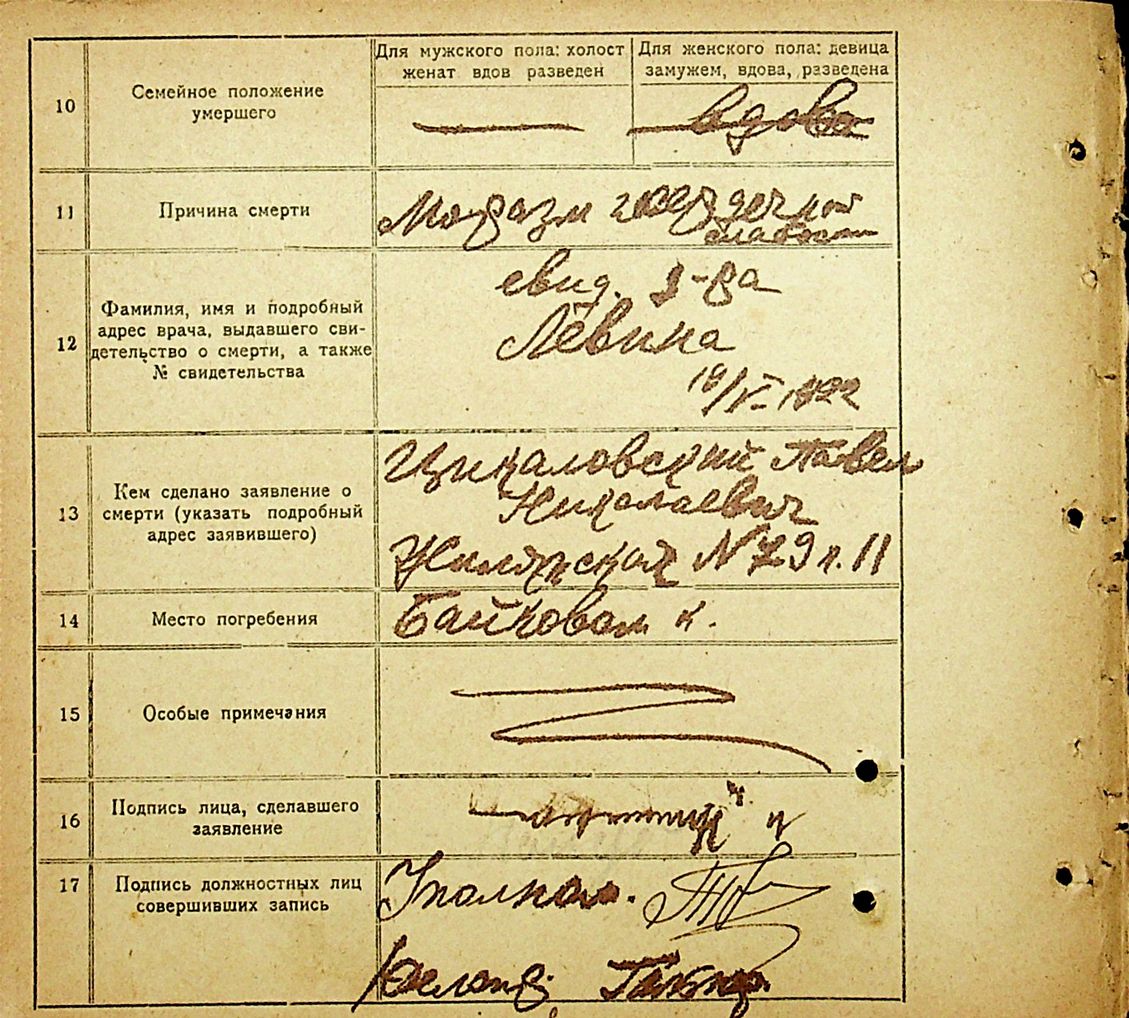 10
Семейное положение
умершего
Для мужского пола: холост
женат вдов разведен
Для женского пола: девица
замужем, вдова, разведена
вдова
11
Причина смерти
слабости
12
Фамилия, имя и подробный
адрес врача, выдавшего сви-
детельство о смерти, а также
№ свидетельства
свид. д-ра
Левина
13
Кем сделано заявление о
смерти (указать подробный
адрес заявившего)
Цикаловский Павел
Николаевич
Жилянская N 79 п. 11
14
Место погребения
Байковом к.
15
Особые примечания
16
Подпись лица, сделавшего
заявление
17
Подпись должностных лиц
совершивших запись
Уполном.